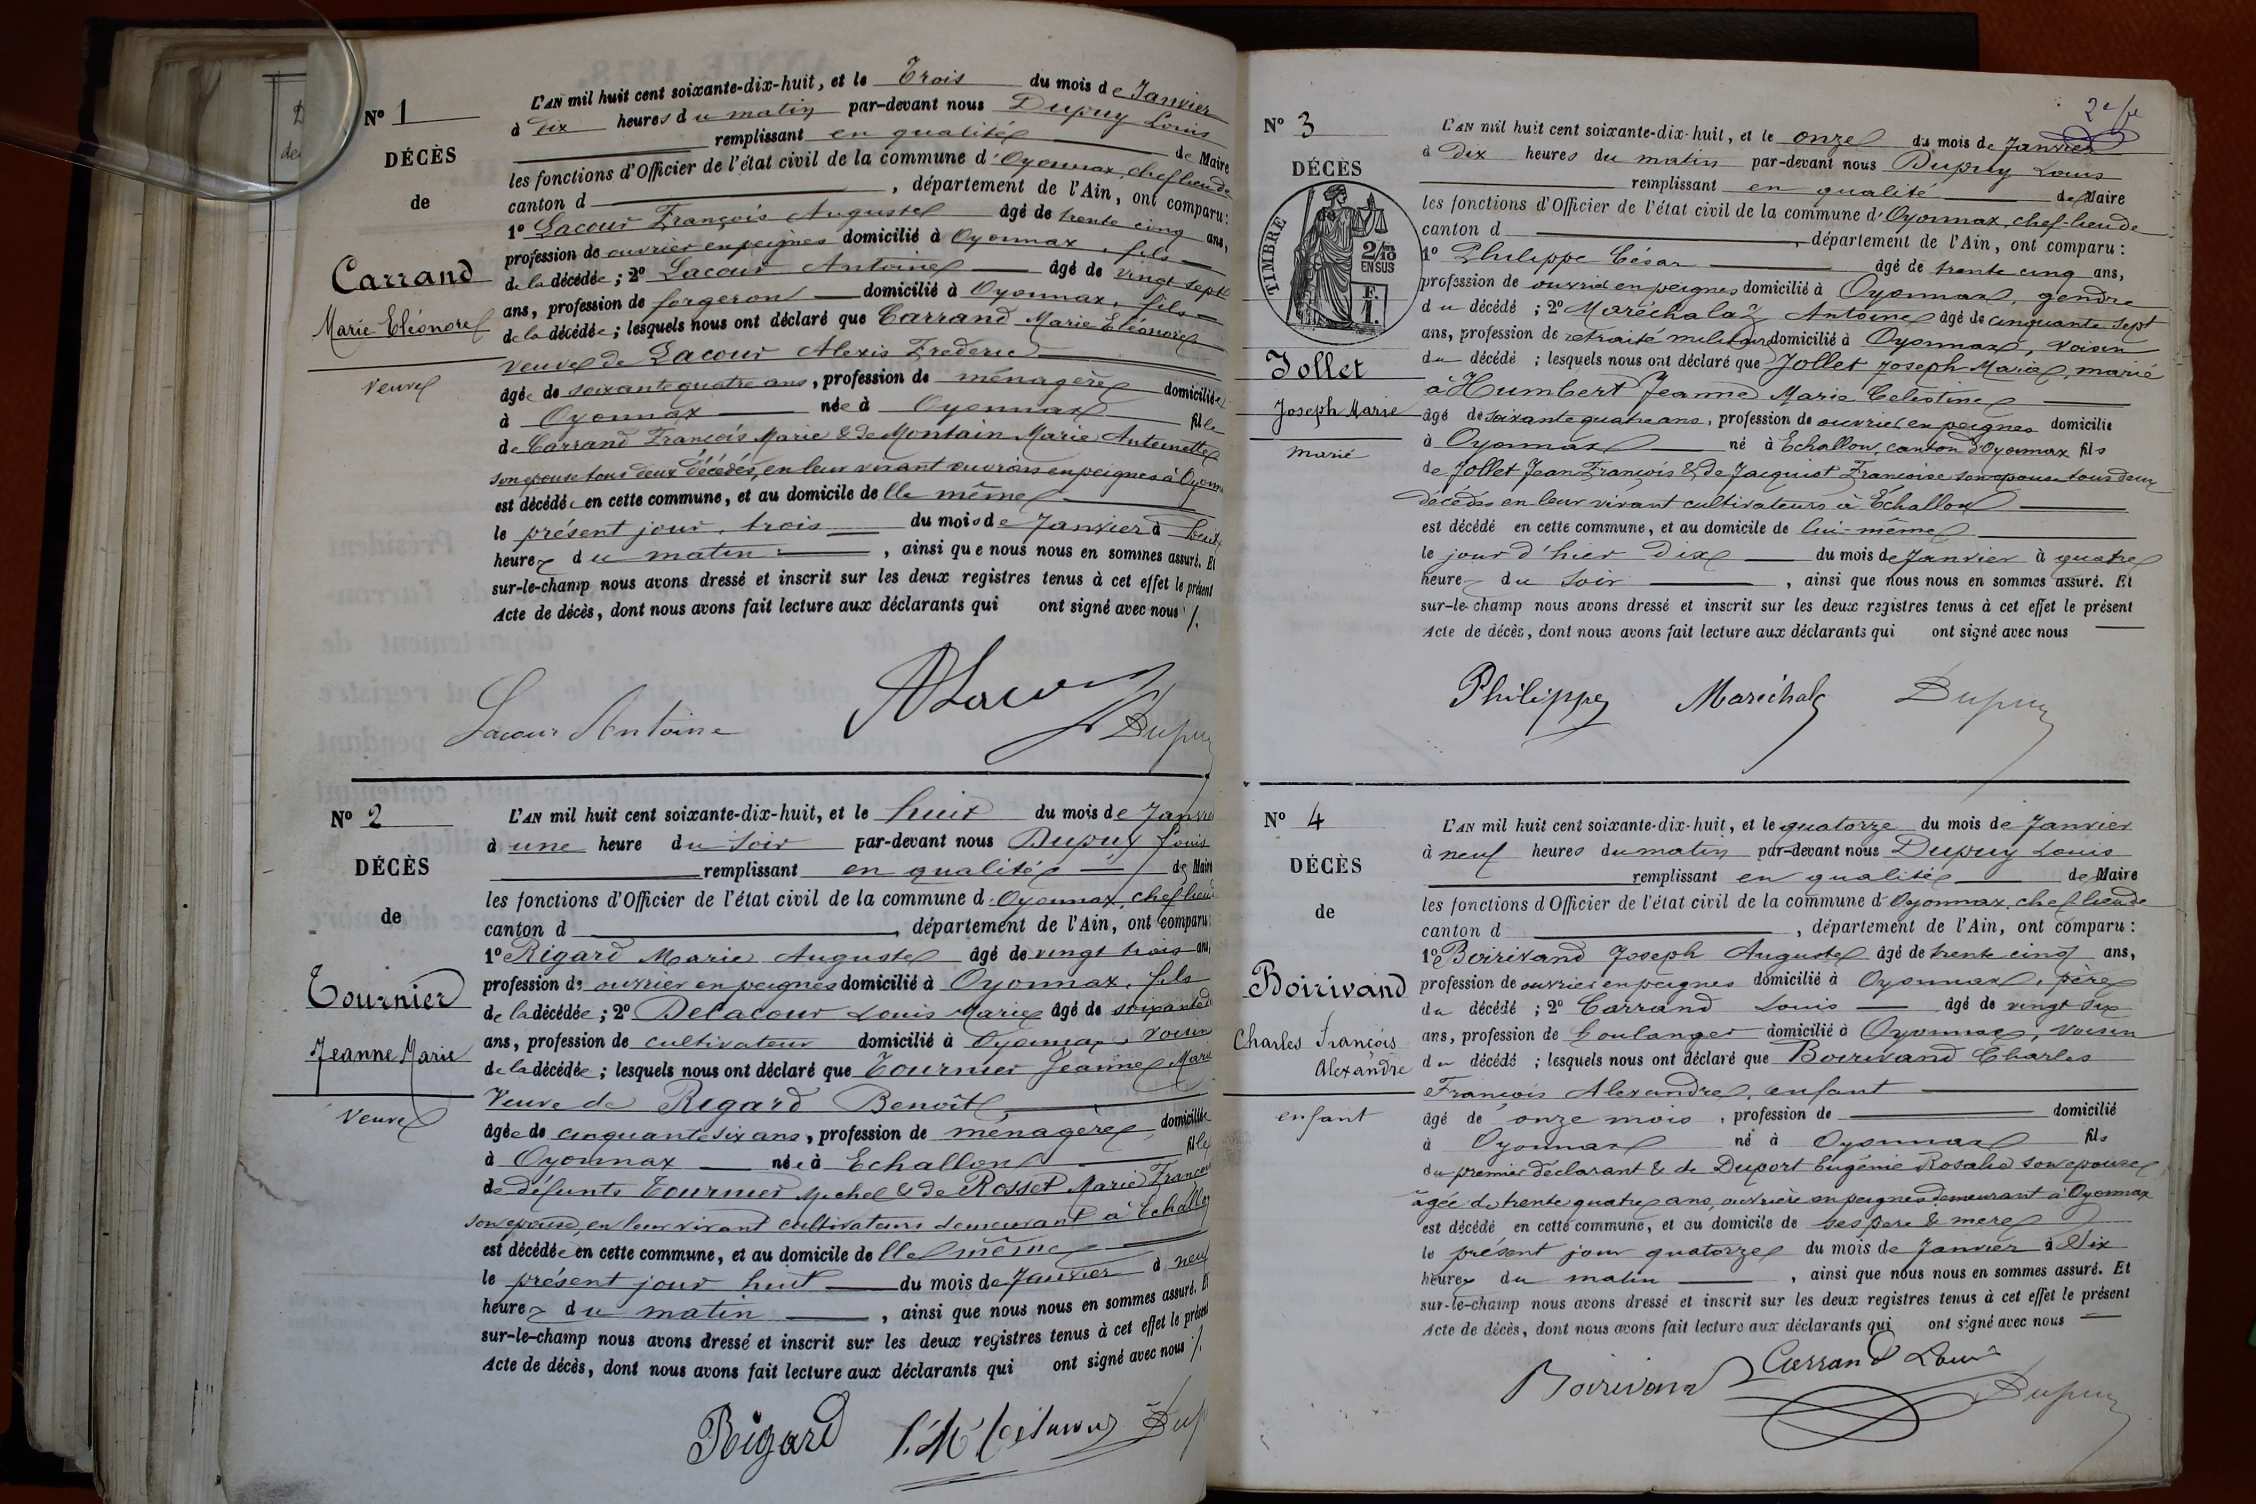 N° 1
DÉCÈS
de
Carrand
Marie Eléonore
veuve
L'AN mil huit cent soixante-dix-huit, et le Trois du mois de Janvier
à dix heures du matin par-devant nous Dupuy Louis
remplissant en qualité de Maire
les fonctions d'Officier de l'état civil de la commune d'Oyonnax, chef lieu de
canton d , département de l'Ain, ont comparu :
1° Lacour François Auguste âgé de trente cinq ans,
profession de ouvrier en peignes domicilié à Oyonnax, fils
de la décédée ; 2° Lacour Antoine âgé de vingt sept
ans, profession de forgeron domicilié à Oyonnax, fils
de la décédée ; lesquels nous ont déclaré que Carrand Marie Eléonore
veuve de Lacour Alexis Frederic
âgée de soixante quatre ans, profession de ménagère domiciliée
à Oyonnax née à Oyonnax fille
de Carrand François Marie & de Montain Marie Antoinette
son epouse tous deux décédés, en leur vivant ouvriers en peignes à Oyonnax
est décédée en cette commune, et au domicile de lle même
le présent jour, trois du mois de Janvier à
heures du matin , ainsi que nous nous en sommes assuré. Et
sur-le-champ nous avons dressé et inscrit sur les deux registres tenus à cet effet le présent
Acte de décès, dont nous avons fait lecture aux déclarants qui ont signé avec nous /.
Lacour Antoine
ALacour
Dupuy
N° 2
DÉCÈS
de
Tournier
Jeanne Marie
veuve
L'AN mil huit cent soixante-dix-huit, et le huit du mois de Janvier
à une heure du soir par-devant nous Dupuy Louis
remplissant en qualité de Maire
les fonctions d'Officier de l'état civil de la commune d'Oyonnax, chef lieu
canton d , département de l'Ain, ont comparu :
1° Rigard Marie Auguste âgé de vingt trois ans,
profession de ouvrier en peignes domicilié à Oyonnax, fils
de la décédée ; 2° Delacour Louis Marie âgé de soixante
ans, profession de cultivateur domicilié à Oyonnax, voisin
de la décédée ; lesquels nous ont déclaré que Tournier Jeanne Marie
Veuve de Regard Benoît
âgée de cinquante six ans, profession de ménagère domiciliée
à Oyonnax née à Echallon fille
de défunts Tournier Michel & de Rosset Marie
son epouse, en leur vivant cultivateurs demeurant à Echallon
est décédée en cette commune, et au domicile de lle même
le présent jour huit du mois de Janvier à neuf
heures du matin , ainsi que nous nous en sommes assuré. Et
sur-le-champ nous avons dressé et inscrit sur les deux registres tenus à cet effet le présent
Acte de décès, dont nous avons fait lecture aux déclarants qui ont signé avec nous /.
Rigard
Delacour
Dup
2e
N° 3
DÉCÈS
TIMBRE
2/10
EN SUS
Jollet
Joseph Marie
marié
L'AN mil huit cent soixante-dix-huit, et le onze du mois de Janvier
à dix heures du matin par-devant nous Dupuy Louis
remplissant en qualité de Maire
les fonctions d'Officier de l'état civil de la commune d'Oyonnax, chef-lieu de
canton d , département de l'Ain, ont comparu :
1° Philippe César âgé de trente cinq ans,
profession de ouvrier en peignes domicilié à Oyonnax, gendre
du décédé ; 2° Maréchalaz Antoine âgé de cinquante sept
ans, profession de retraité militaire domicilié à Oyonnax, voisin
du décédé ; lesquels nous ont déclaré que Jollet Joseph Marie, marié
à Humbert Jeanne Marie Celestine
âgé de soixante quatre ans, profession de ouvrier en peignes domicilié
à Oyonnax né à Echallon, canton d'Oyonnax fils
de Jollet Jean François & de Jacquiot Françoise son epouse tous deux
décédés en leur vivant cultivateurs à Echallon
est décédé en cette commune, et au domicile de lui-même
le jour d'hier dix du mois de Janvier à quatre
heures du soir , ainsi que nous nous en sommes assuré. Et
sur-le-champ nous avons dressé et inscrit sur les deux registres tenus à cet effet le présent
Acte de décès, dont nous avons fait lecture aux déclarants qui ont signé avec nous
Philippe
Maréchalaz
Dupuy
N° 4
DÉCÈS
de
Boirivand
Charles François
Alexandre
enfant
L'AN mil huit cent soixante-dix-huit, et le quatorze du mois de Janvier
à neuf heures du matin par-devant nous Dupuy Louis
remplissant en qualité de Maire
les fonctions d'Officier de l'état civil de la commune d'Oyonnax, chef lieu de
canton d , département de l'Ain, ont comparu :
1° Boirivand Joseph Auguste âgé de trente cinq ans,
profession de ouvrier en peignes domicilié à Oyonnax, père
du décédé ; 2° Carrand Louis âgé de vingt six
ans, profession de boulanger domicilié à Oyonnax, voisin
du décédé ; lesquels nous ont déclaré que Boirivand Charles
François Alexandre, enfant
âgé de onze mois, profession de domicilié
à Oyonnax né à Oyonnax fils
du premier déclarant & de Duport Eugénie Rosalie son epouse
âgée de trente quatre ans, ouvrière en peignes demeurant à Oyonnax
est décédé en cette commune, et au domicile de ses pere & mere
le présent jour quatorze du mois de Janvier à Six
heures du matin , ainsi que nous nous en sommes assuré. Et
sur-le-champ nous avons dressé et inscrit sur les deux registres tenus à cet effet le présent
Acte de décès, dont nous avons fait lecture aux déclarants qui ont signé avec nous
Boirivand
Carrand Louis
Dupuy